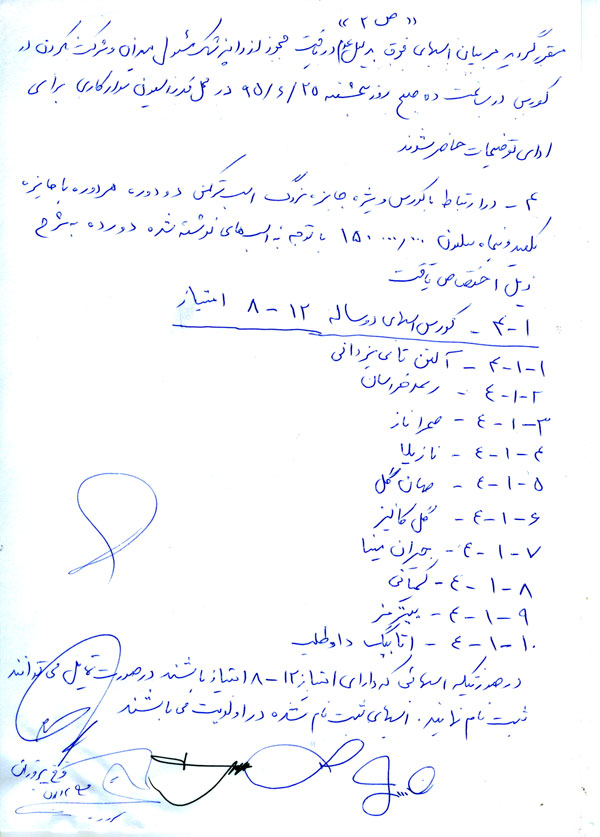 « ص ۲ »
مقرر گردید مربیان اسبهای فوق به دلیل عدم دریافت مجوز از دامپزشک مسئول میدان و شرکت نکردن در
کورس در ساعت ده صبح روز سه شنبه ۹۵/۶/۲۵ در محل فدراسیون سوارکاری برای
ادای توضیحات حاضر شوند
۴ - در ارتباط با کورس ویژه جایزه بزرگ اسب ترکمن دو دوره هر دوره با جایزه
یکصد و پنجاه میلیون ۱۵۰/۰۰۰/۰۰۰ با توجه به اسبهای نوشته شده دو رده به شرح
ذیل اختصاص یافت
۴-۱ - کورس اسبهای دو ساله ۱۲ - ۸ امتیاز
۴-۱-۱ - آلتن تای یزدانی
۴-۱-۲ - رسمد خراسان
۴-۱-۳ - صرا ناز
۴-۱-۴ - نازیلا
۴-۱-۵ - جهان گل
۴-۱-۶ - گل کالیز
۴-۱-۷ - بحران مینا
۴-۱-۸ - کمانی
۴-۱-۹ -
۴-۱-۱۰ - اتابیک داوطلب
در صورتیکه اسبهائی که دارای امتیاز ۱۲-۸ امتیاز باشند در صورت تمایل می توانند
ثبت نام نمایند. اسبهای ثبت نام شده در اولویت می باشند